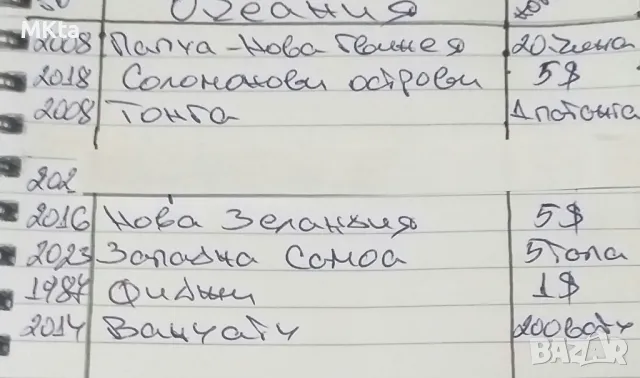 MKta
Океания
2008 Папуа-Нова Гвинея 20 кина
2018 Соломонови острови 5$
2008 Тонга 1 патанга
202
2016 Нова Зеландия 5$
2023 Западна Самоа 5 Тала
1987 Фиджи 1$
2014 Вануату 200 вату
bazar.bg